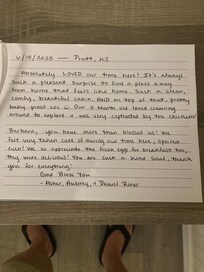 4/19/2025 — Pratt, KS
Absolutely LOVED our time here! It's always
such a pleasant surprise to find a place away
from home that feels like home. Such a clean,
comfy, beautiful cabin. And on top of that, pretty
baby proof LOL ☺ Our 11 month old loved crawling
around to explore & was very captivated by the chickens!
Barbara, you have more than blessed us! We
felt very taken care of during our time here, spoiled
even! We so appreciate the fresh eggs for breakfast too,
they were delicious! You are such a kind soul, thank
you for everything!
God Bless You
- Asher, Aubrey, & Daniel